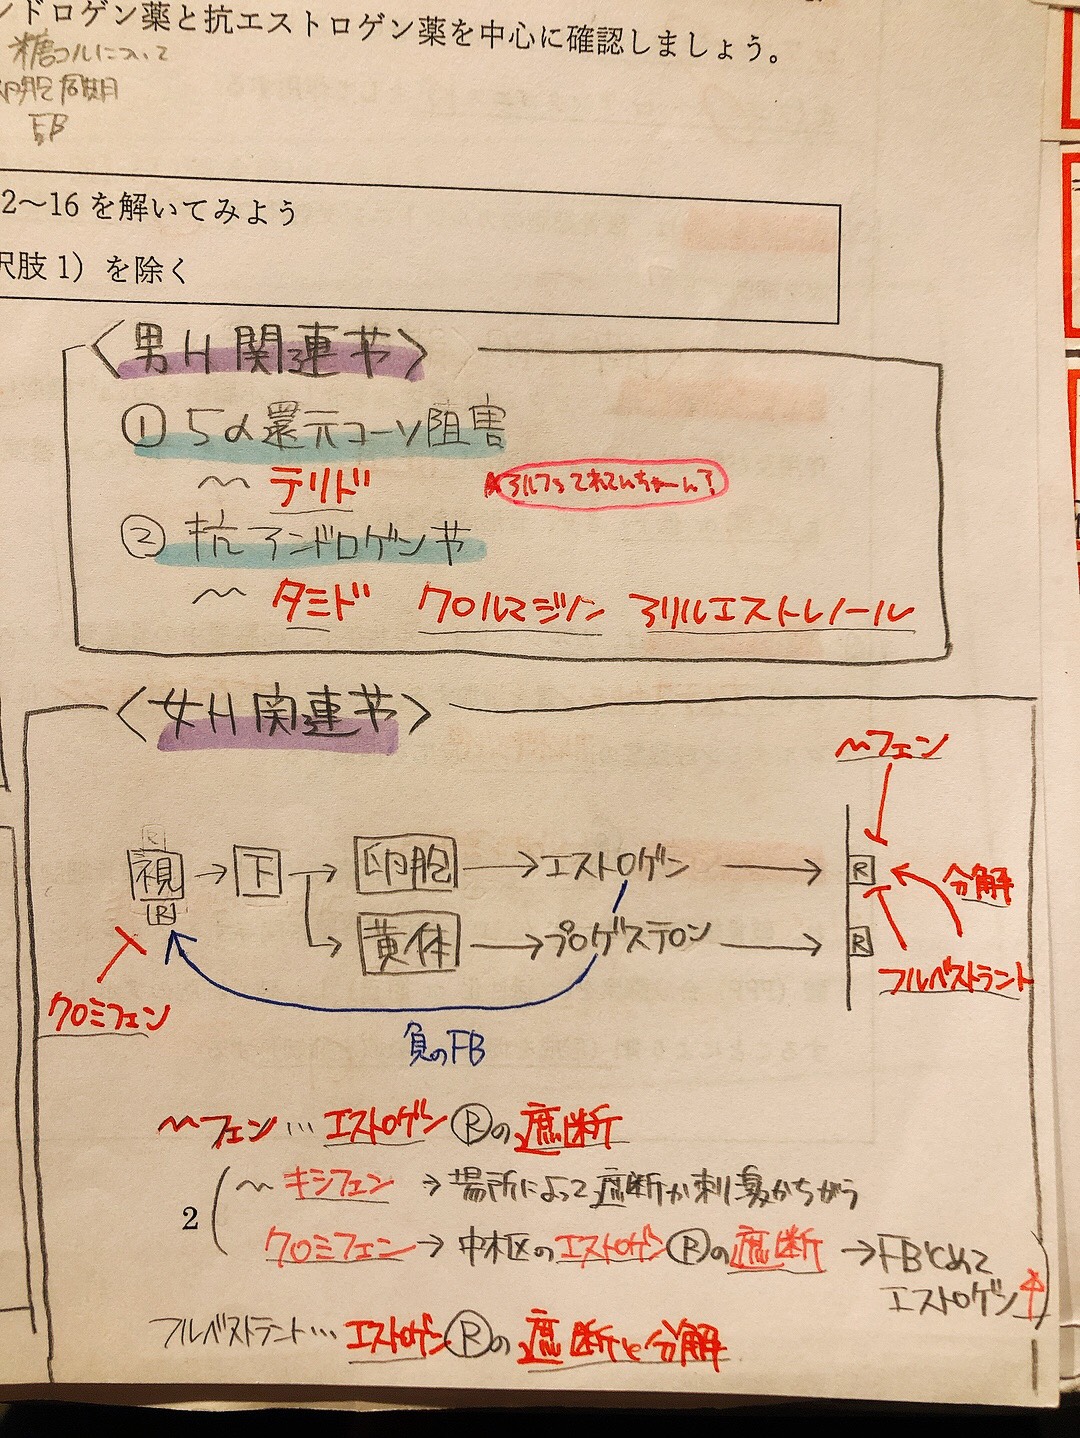 ンドロゲン薬と抗エストロゲン薬を中心に確認しましょう。
糖コルについて
卵胞周期
FB
2～16 を解いてみよう
択肢 1）を除く
〈男H関連薬〉
① 5α還元コーソ阻害
〜テリド
② 抗アンドロゲン薬
〜タミド クロルマジノン アリルエストレノール
〈女H関連薬〉
〜フェン
視 → 下 → 卵胞 → エストロゲン → R 分解
R
黄体 → プロゲステロン → R
フルベストラント
クロミフェン
負のFB
〜フェン… エストロゲンⓇの遮断
〜キシフェン → 場所によって遮断か刺激かちがう
2
クロミフェン → 中枢のエストロゲンⓇの遮断 → FBとめて
エストロゲン↑
フルベストラント… エストロゲンⓇの遮断と分解